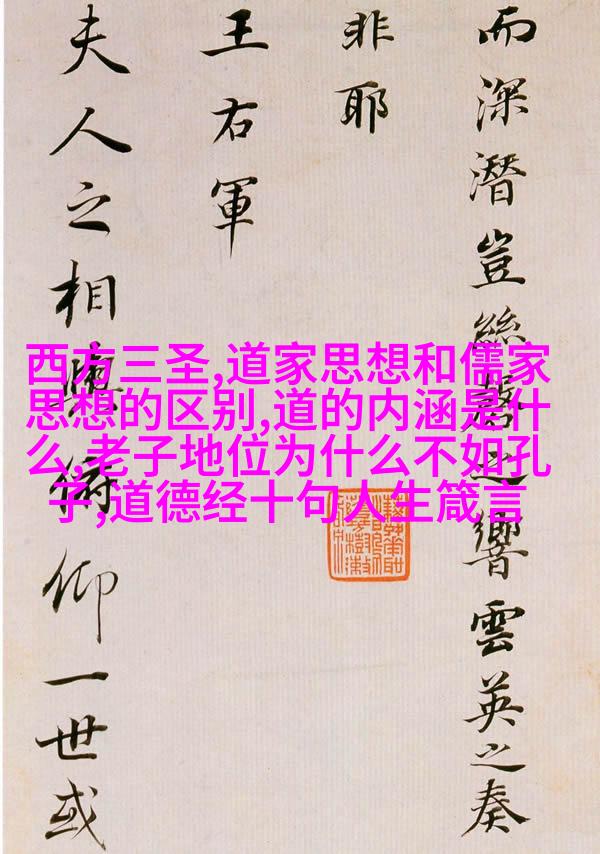 而深潛豈絲磬之響雲英之奏
非耶
王右軍
夫人之相與俯仰一世或
西方三圣,道家思想和儒家
思想的区别,道的内涵是什
么,老子地位为什么不如孔
子,道德经十句人生箴言